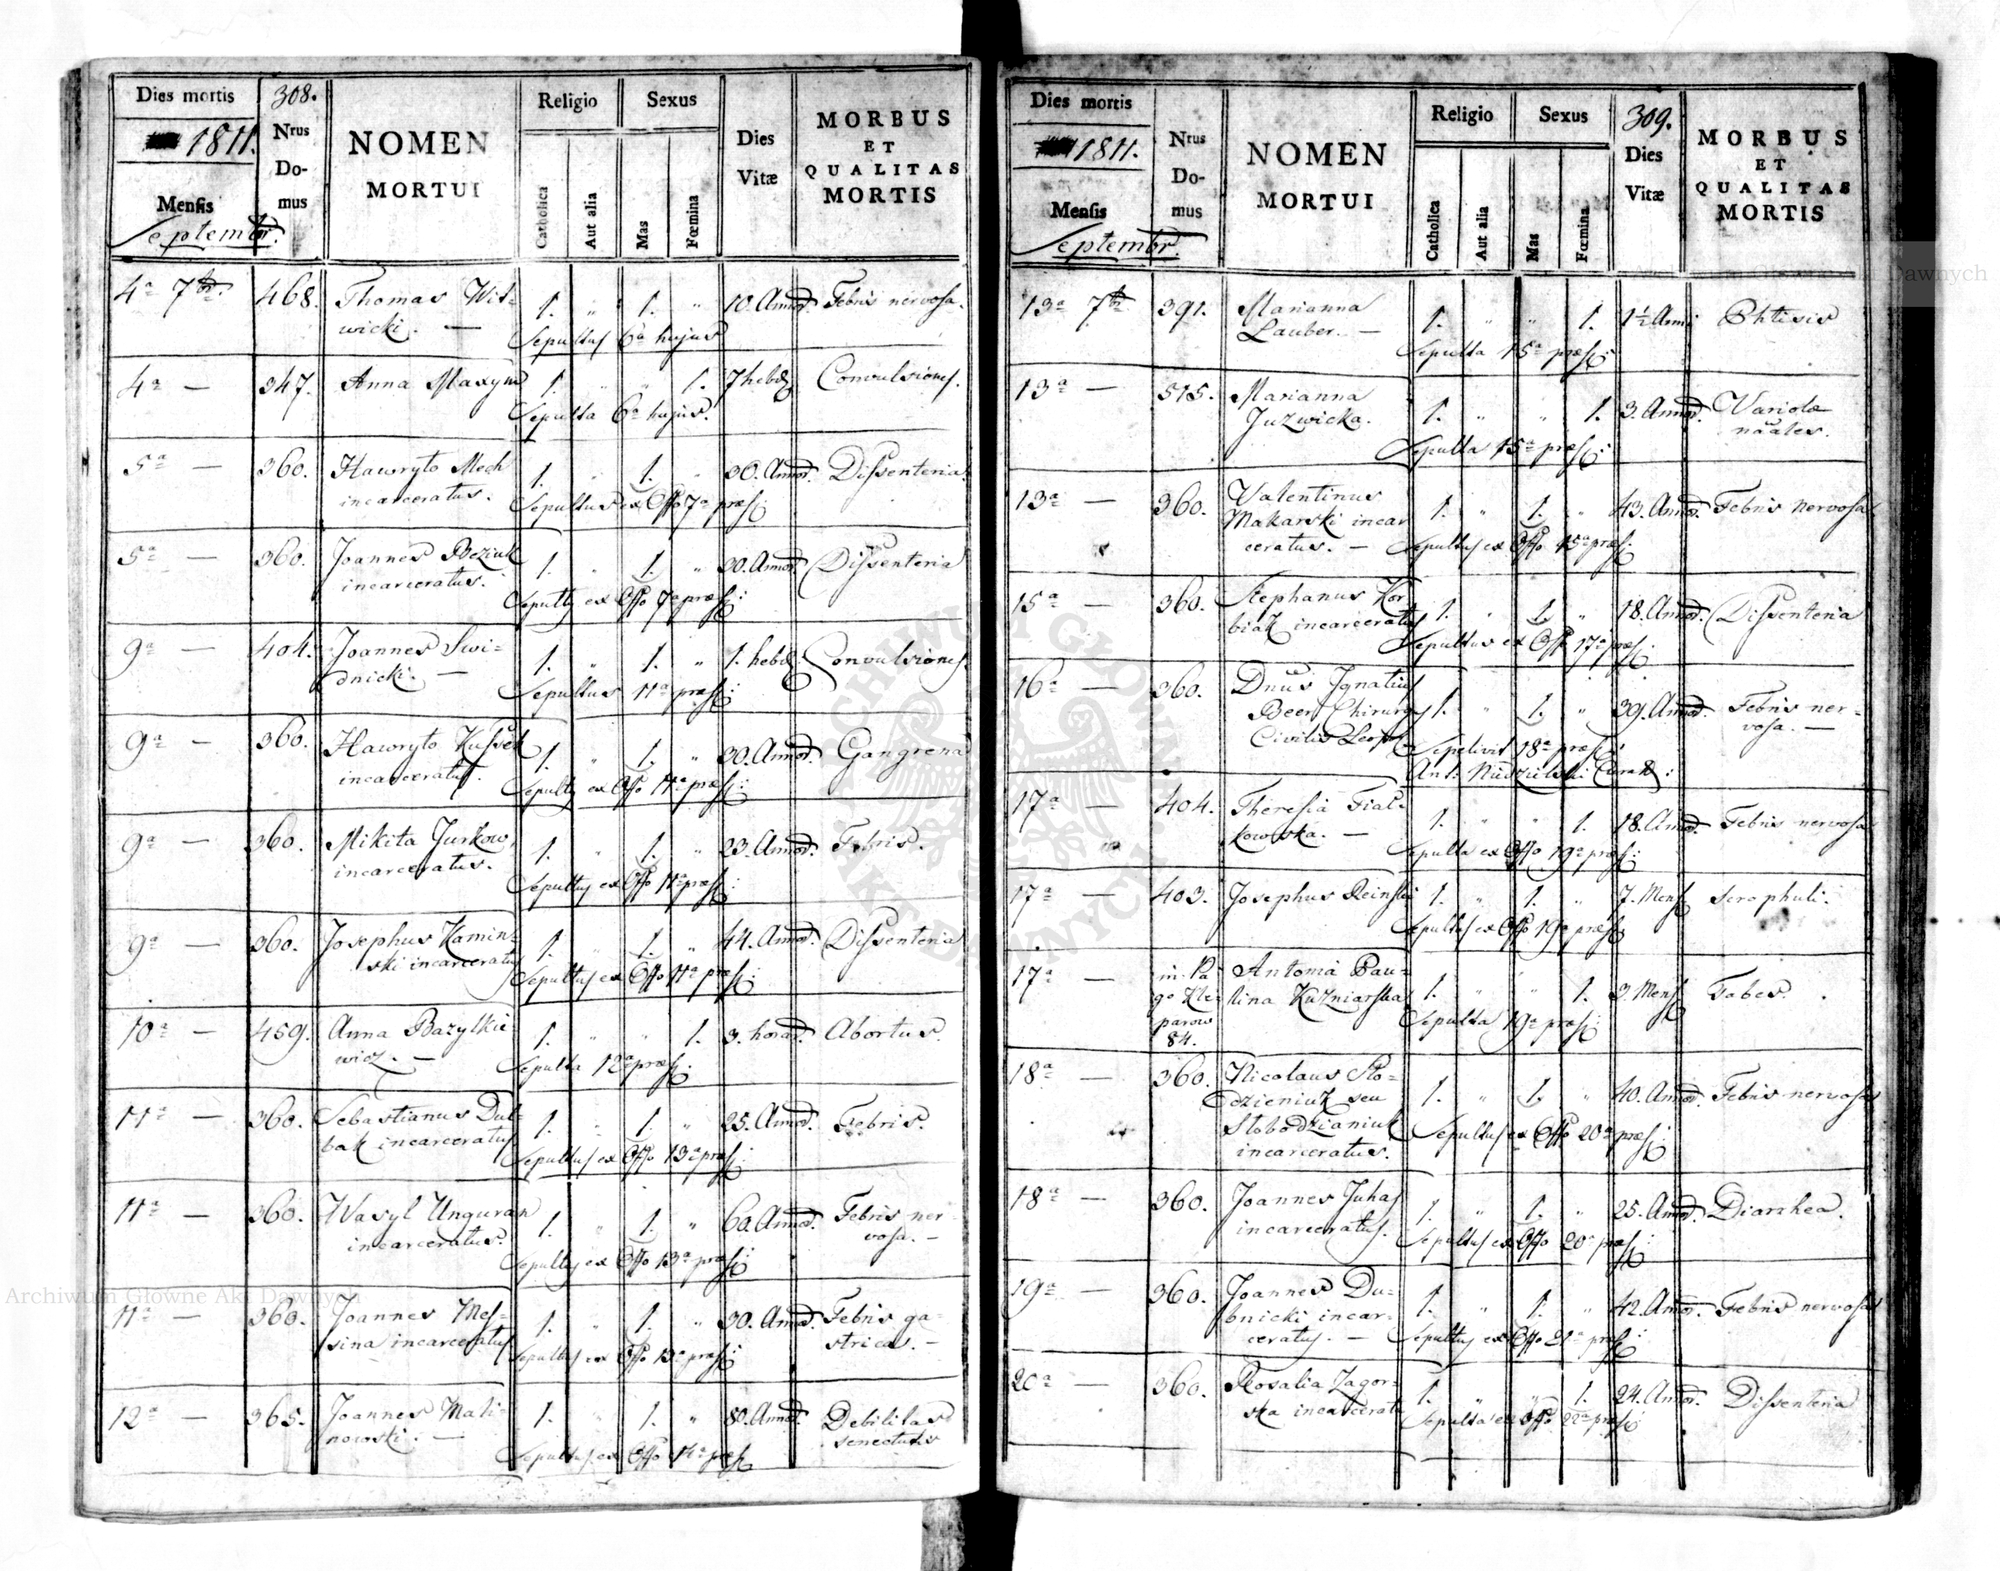 Dies mortis
308.
Religio
Sexus
1811.
Nrus
Do-
mus
NOMEN
MORTUI
Dies
Vitæ
MORBUS
ET
QUALITAS
MORTIS
Mensis
Septembr.
Catholica
Aut alia
Mas
Fœmina
4ª 7br. 468. Thomas Wit- 1. " 1. " 10. Annor. Febris nervosa.
wicki. —
Sepultus 6ª hujus
4ª — 347. Anna Maxym 1. " " 1. 7 hebd. Convulsiones.
Sepulta 6ª hujus.
5ª — 360. Hawryto Mech 1. " 1. " 30. Annor. Dissenteria.
incarceratus.
Sepultus ex Offo 7ª præs:
5ª — 360. Joannes Beziuk 1. " 1. " 30. Annor. Dissenteria
incarceratus.
Sepultus ex Offo 7ª præs:
9ª — 404. Joannes Swi- 1. " 1. " 1. hebd. Convulsiones
dnicki. —
Sepultus 11ª præs:
9ª — 360. Hawryto Kussek 1. " 1. " 30. Annor. Gangrena
incarceratus.
Sepultus ex Offo 11ª præs:
9ª — 360. Mikita Jurkow 1. " 1. " 23. Annor. Febris.
incarceratus.
Sepultus ex Offo 11ª præs:
9ª — 360. Josephus Kamin- 1. " 1. " 44. Annor. Dissenteria
ski incarceratus
Sepultus ex Offo 11ª præs:
10ª — 459. Anna Bazylkie- 1. " " 1. 3. horar. Abortus.
wicz. —
Sepulta 12ª præs:
11ª — 360. Sebastianus Dul- 1. " 1. " 25. Annor. Febris.
bak incarceratus
Sepultus ex Offo 13ª præs:
11ª — 360. Wasyl Unguran 1. " 1. " 60. Annor. Febris ner-
incarceratus. vosa. —
Sepultus ex Offo 13ª præs:
11ª — 360. Joannes Mes- 1. " 1. " 30. Annor. Febris ga-
sina incarceratus strica. —
Sepultus ex Offo 13ª præs:
12ª — 365. Joannes Mali- 1. " 1. " 80. Annor. Debilitas
nowski. — senectutis
Sepultus ex Offo 14ª præs
Dies mortis
Religio
Sexus
309.
1811.
Nrus
Do-
mus
NOMEN
MORTUI
Dies
Vitæ
MORBUS
ET
QUALITAS
MORTIS
Mensis
Septembr.
Catholica
Aut alia
Mas
Fœmina
13ª 7br 391. Marianna 1. " " 1. 1½ Anni Phtisis
Lauber. —
Sepulta 15ª præs:
13ª — 515. Marianna 1. " " 1. 3. Annor. Variolæ
Juzwicka. naales.
Sepulta 15ª præs:
13ª — 360. Valentinus 1. " 1. " 43. Annor. Febris nervosa
Makarski incar
ceratus. —
Sepultus ex Offo 15ª præs:
15ª — 360. Stephanus Kor 1. " 1. " 18. Annor. Dissenteria
biak incarceratus
Sepultus ex Offo 17ª præs:
16ª — 360. Dnus Ignatius 1. " 1. " 39. Annor. Febris ner-
Beer Chirurgus vosa. —
Civilis Leop.
Sepelivit 18ª præs:
Ant: Nudzielski Curat:
17ª — 404. Theresia Fial- 1. " " 1. 18. Annor. Febris nervosa
kowska. —
Sepulta ex Offo 19ª præs:
17ª — 403. Josephus Reinski 1. " 1. " 7. Mens. Scrophuli.
Sepultus ex Offo 19ª præs
17ª — in Pa- Antonia Pau- 1. " " 1. 3. Mens. Tabes.
go Kle- lina Kuzniarska
parow
84.
Sepulta 19ª præs:
18ª — 360. Nicolaus Slo- 1. " 1. " 40. Annor. Febris nervosa
dzieniuk seu
Slobodzianiuk
incarceratus.
Sepultus ex Offo 20ª præs:
18ª — 360. Joannes Juhas 1. " 1. " 25. Annor. Diarrhea.
incarceratus.
Sepultus ex Offo 20ª præs:
19ª — 360. Joannes Du- 1. " 1. " 42. Annor. Febris nervosa
bnicki incar-
ceratus. —
Sepultus ex Offo 21ª præs:
20ª — 360. Rosalia Zagor- 1. " " 1. 24. Annor. Dissenteria
ska incarcerata
Sepulta ex Offo 22ª præs:
Archiwum Główne Akt Dawnych
Archiwum Główne Akt Dawnych
ARCHIWUM GŁÓWNE AKT DAWNYCH